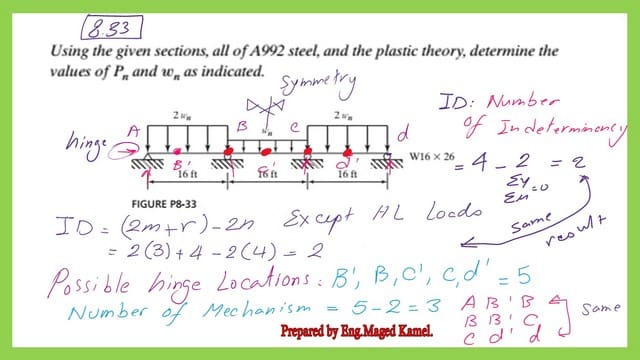 8.33
Using the given sections, all of A992 steel, and the plastic theory, determine the
values of Pn and wn as indicated.
Symmetry
ID: Number
of Indeterminency
2 wn
2 wn
A
B
wn
C
d
hinge
B'
C'
d'
W16 × 26
16 ft
16 ft
16 ft
= 4 - 2 = 2
Σy
Σm = 0
FIGURE P8-33
ID = (2m+r) - 2n Except HL Loads
Same result
= 2(3) + 4 - 2(4) = 2
Possible hinge Locations: B', B, C', C, d' = 5
Number of Mechanism = 5-2 = 3
A B' B
B B' C
C d' d
Same
Prepared by Eng.Maged Kamel.